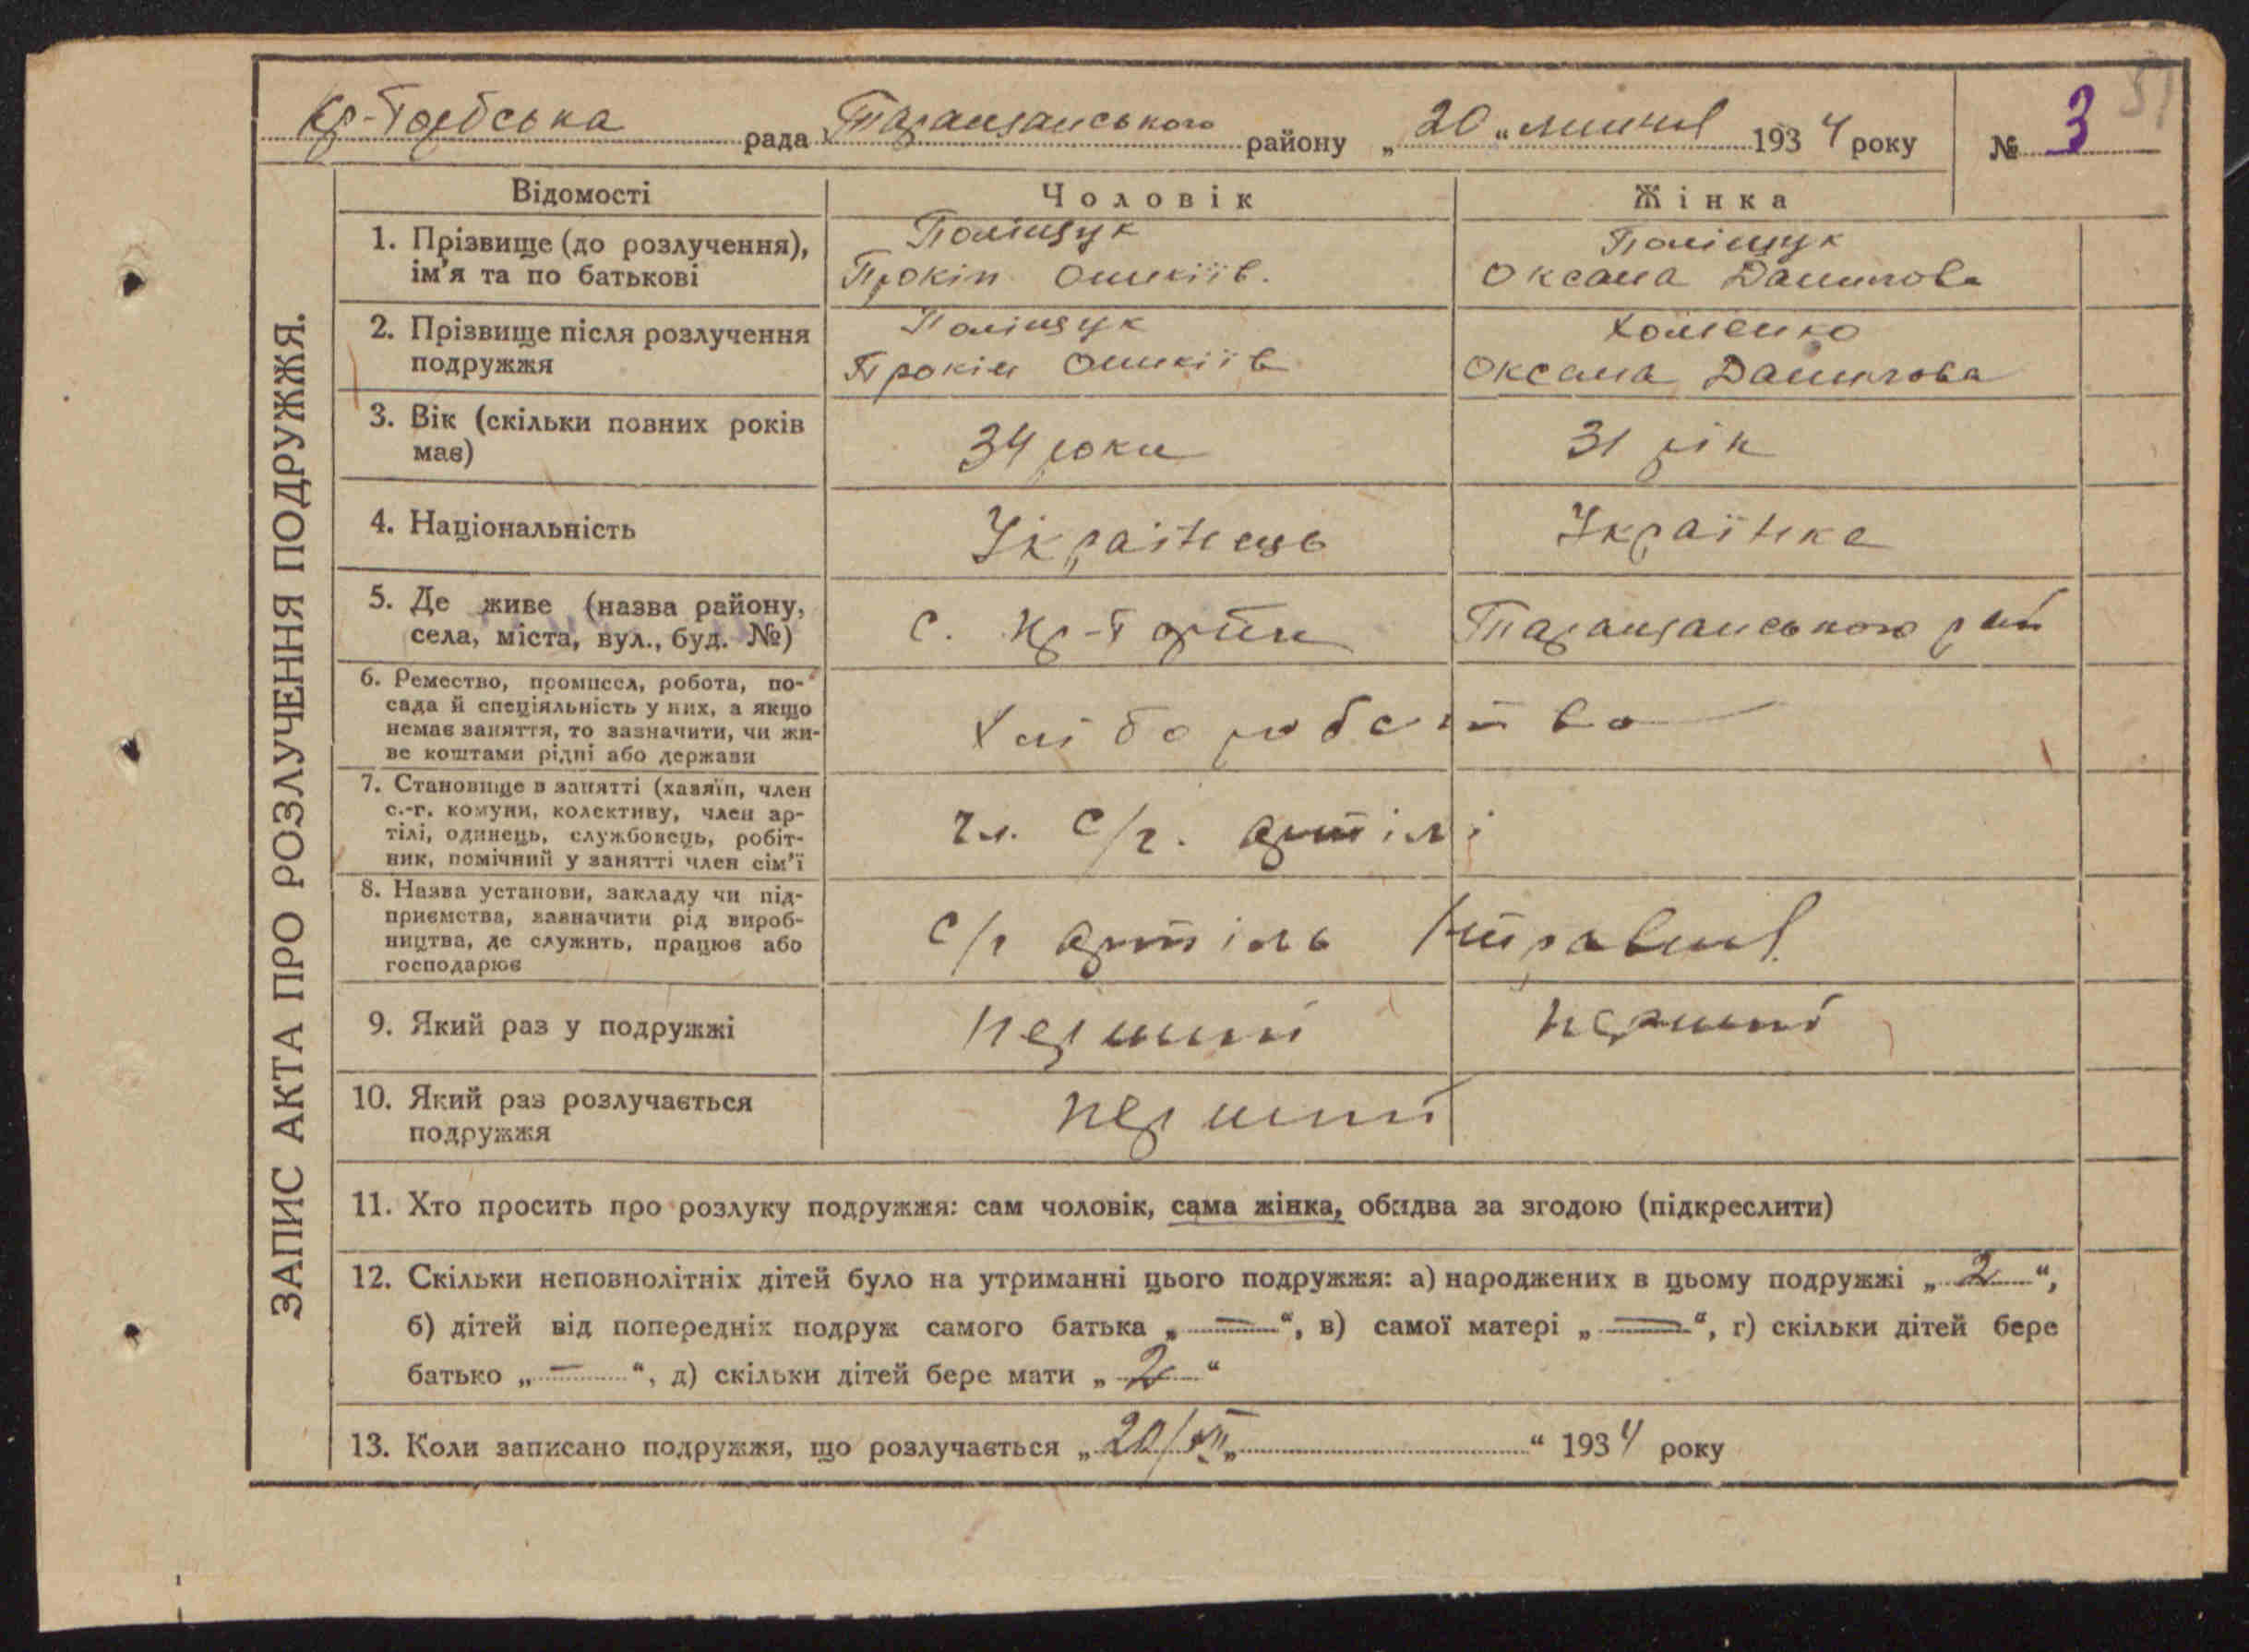 Кр-Горбська рада Таращанського району „ 20 “ липня 1934 року № 3
51
ЗАПИС АКТА ПРО РОЗЛУЧЕННЯ ПОДРУЖЖЯ.
Відомості Чоловік Жінка
1. Прізвище (до розлучення), ім'я та по батькові
Поліщук
Прокіп
Поліщук
Оксана Данилова
2. Прізвище після розлучення подружжя
Поліщук
Прокіп
Хоменко
Оксана Данилова
3. Вік (скільки повних років має)
34 роки
31 рік
4. Національність
Українець
Українка
5. Де живе (назва району, села, міста, вул., буд. №)
с. Кр- Таращанського рай
6. Ремество, промисел, робота, по-
сада й спеціяльність у них, а якщо
немає заняття, то зазначити, чи жи-
ве коштами рідні або держави
Хліборобство
7. Становище в занятті (хазяїн, член
с.-г. комуни, колективу, член ар-
тілі, одинець, службовець, робіт-
ник, помічний у занятті член сім'ї
чл. с/г. артілі
8. Назва установи, закладу чи під-
приємства, зазначити рід вироб-
ництва, де служить, працює або
господарює
с/г артіль
9. Який раз у подружжі
перший
перший
10. Який раз розлучається
подружжя
перший
11. Хто просить про розлуку подружжя: сам чоловік, сама жінка, обидва за згодою (підкреслити)
12. Скільки неповнолітніх дітей було на утриманні цього подружжя: а) народжених в цьому подружжі „ 2 “,
б) дітей від попередніх подруж самого батька „ — “, в) самої матері „ — “, г) скільки дітей бере
батько „ — “, д) скільки дітей бере мати „ 2 “
13. Коли записано подружжя, що розлучається „ 20/VII „ “ 1934 року